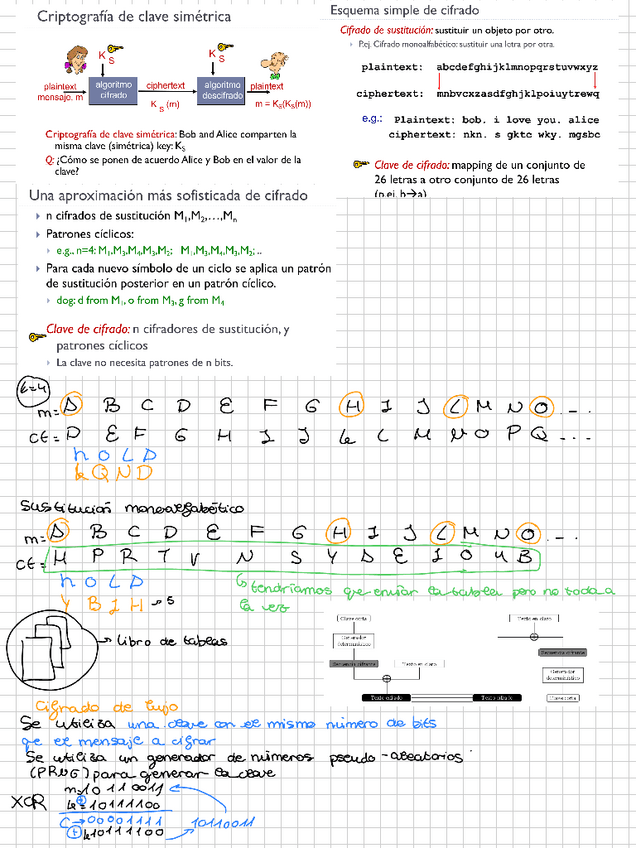 Criptografía de clave simétrica
K S
K S
plaintext
mensaje, m
algoritmo
cifrado
ciphertext
K S (m)
algoritmo
descifrado
plaintext
m = KS(KS(m))
Criptografía de clave simétrica: Bob and Alice comparten la
misma clave (simétrica) key: KS
Q: ¿Cómo se ponen de acuerdo Alice y Bob en el valor de la
clave?
Esquema simple de cifrado
Cifrado de sustitución: sustituir un objeto por otro.
P.ej. Cifrado monoalfabético: sustituir una letra por otra.
plaintext: abcdefghijklmnopqrstuvwxyz
ciphertext: mnbvcxzasdfghjklpoiuytrewq
e.g.: Plaintext: bob. i love you. alice
ciphertext: nkn. s gktc wky. mgsbc
Clave de cifrado: mapping de un conjunto de
26 letras a otro conjunto de 26 letras
(p.ej. b→a)
Una aproximación más sofisticada de cifrado
n cifrados de sustitución M1,M2,…,Mn
Patrones cíclicos:
e.g., n=4: M1,M3,M4,M3,M2; M1,M3,M4,M3,M2; ..
Para cada nuevo símbolo de un ciclo se aplica un patrón
de sustitución posterior en un patrón cíclico.
dog: d from M1, o from M3, g from M4
Clave de cifrado: n cifradores de sustitución, y
patrones cíclicos
La clave no necesita patrones de n bits.
m= A B C D E F G H I J L M N O ...
CE= D E F G H I J K L M N O P Q ...
H O L D
K Q N D
Sustitución monoalfabético
m= A B C D E F G H I J L M N O ...
CE= M P R T V N S Y D E I O U B
H O L D
Y B I H → S
tendríamos que enviar la tabla pero no toda a
la vez
Libro de tablas
Clave corta
Generador
determinístico
Secuencia cifrante
Texto en claro
Texto cifrado
Texto en claro
Secuencia cifrante
Generador
determinístico
Clave corta
Texto cifrado
Cifrado de flujo
Se utiliza una clave con el mismo número de bits
que el mensaje a cifrar
Se utiliza un generador de números pseudo-aleatorios
(PRNG) para generar la clave
m=10110011
XOR k=10111100
C→00001111
k10111100 10110011